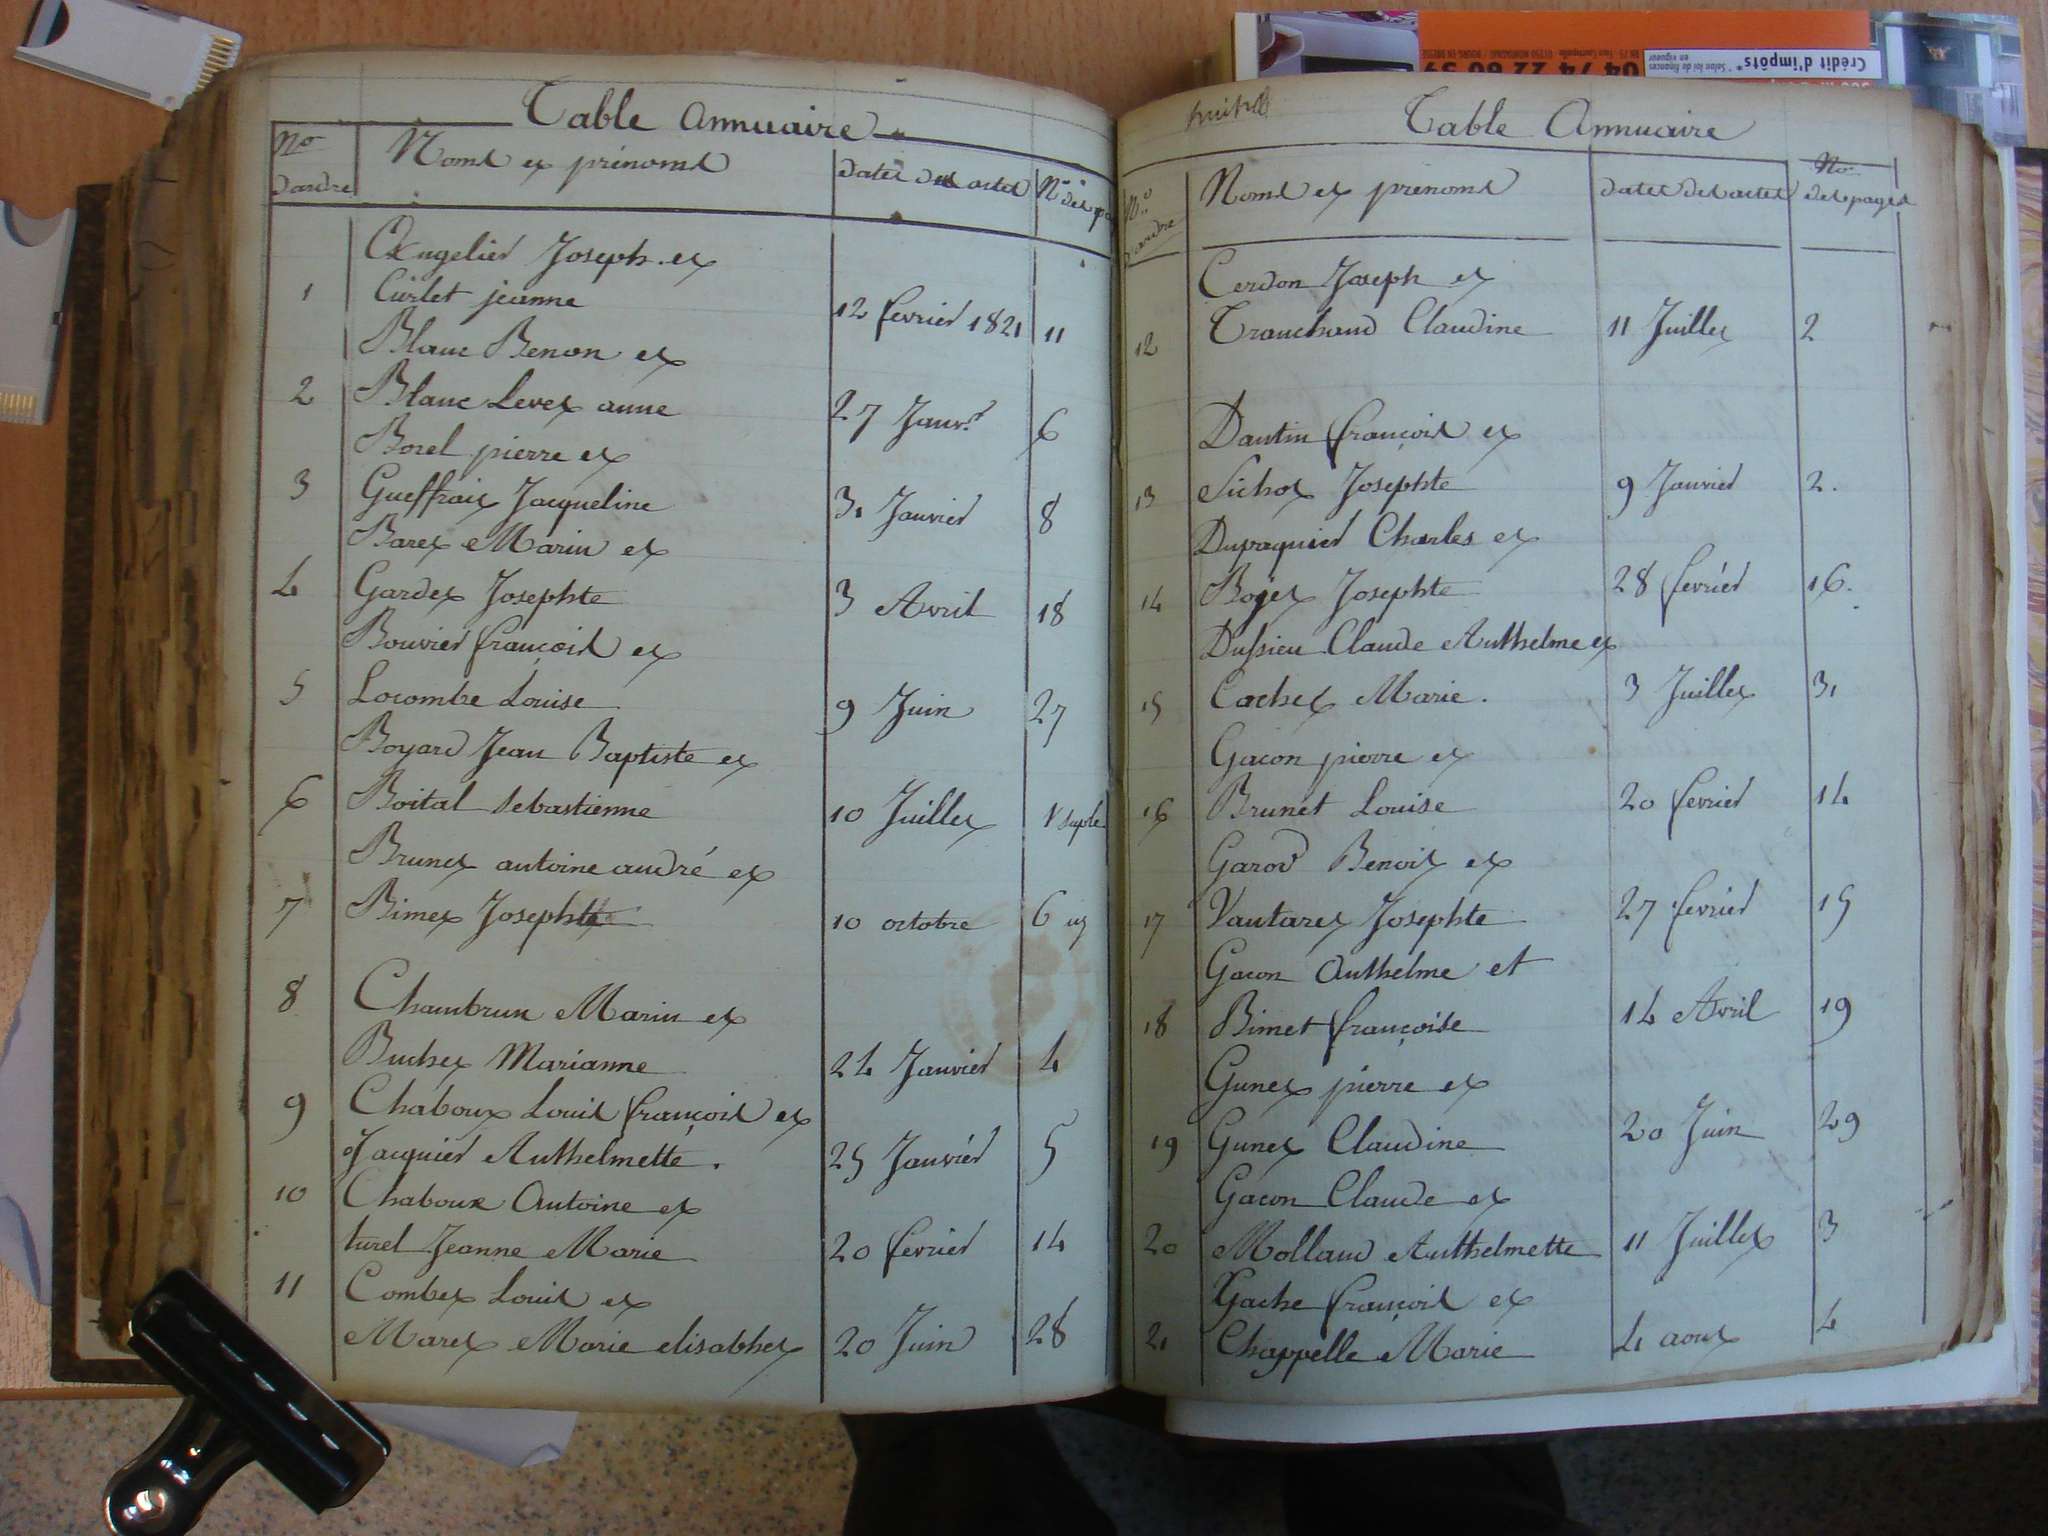 Table Annuaire
No
d'ordre
Noms et prénoms
dates des actes
No des
Angelier Joseph et
1 Curlet jeanne 12 fevrier 1821 11
Blanc Benon et
2 Blanc Levet anne 27 Janvr 6
Borel pierre et
3 Gueffrait Jacqueline 31 Janvier 8
Baret Marin et
4 Gardet Josephte 3 Avril 18
Bouvier françois et
5 Locombe Louise 9 Juin 27
Boyard Jean Baptiste et
6 Boital sebastienne 10 Juillet 1 suple
Brunet antoine andré et
7 Bimet Josephte 10 octobre 6
8 Chambrun Marin et
Buchet Marianne 24 Janvier 4
9 Chaboux Louis françois et
Jacquier Anthelmette. 25 Janvier 5
10 Chaboux Antoine et
turel Jeanne Marie 20 fevrier 14
11 Combet Louis et
Maret Marie elisabhet 20 Juin 28
Table Annuaire
No
d'ordre
Noms et prenoms
dates des actes
No
des pages
Cerdon Joseph et
12 Tranchand Claudine 11 Juillet 2
Dantin françois et
13 Sichot Josephte 9 Janvier 2.
Dupaquier Charles et
14 Boget Josephte 28 fevrier 16.
Dussieu Claude Anthelme et
15 Cachet Marie. 3 Juillet 31
Gacon pierre et
16 Brunet Louise 20 fevrier 14
Garod Benoit et
17 Vautaret Josephte 27 fevrier 15
Gacon Anthelme et
18 Bimet françoise 14 Avril 19
Gunet pierre et
19 Gunet Claudine 20 Juin 29
Gacon Claude et
20 Molland Anthelmette 11 Juillet 3
Gache françois et
21 Chappelle Marie 4 aout 4
04 74 22 60 59
Crédit d'impôts*
*Selon loi de finances
en vigueur